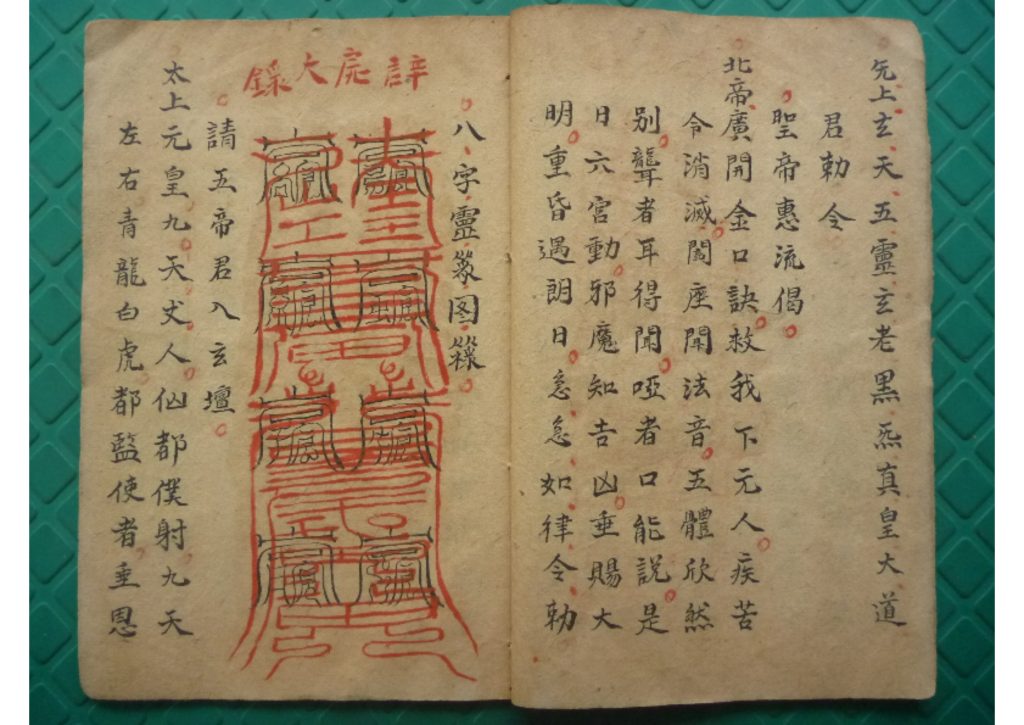 先上玄天五靈玄老黑炁真皇大道
君勅令
聖帝惠流偈
北帝廣開金口訣救我下元人疾苦
令消滅闔座聞法音五體欣然
別聾者耳得聞啞者口能説是
日六宮動邪魔知吉凶垂賜大
明重昏遇朗日急急如律令勅
八字靈篆图籙
大錄
請五帝君入玄壇
太上元皇九天丈人仙都僕射九天
左右青龍白虎都監使者垂恩